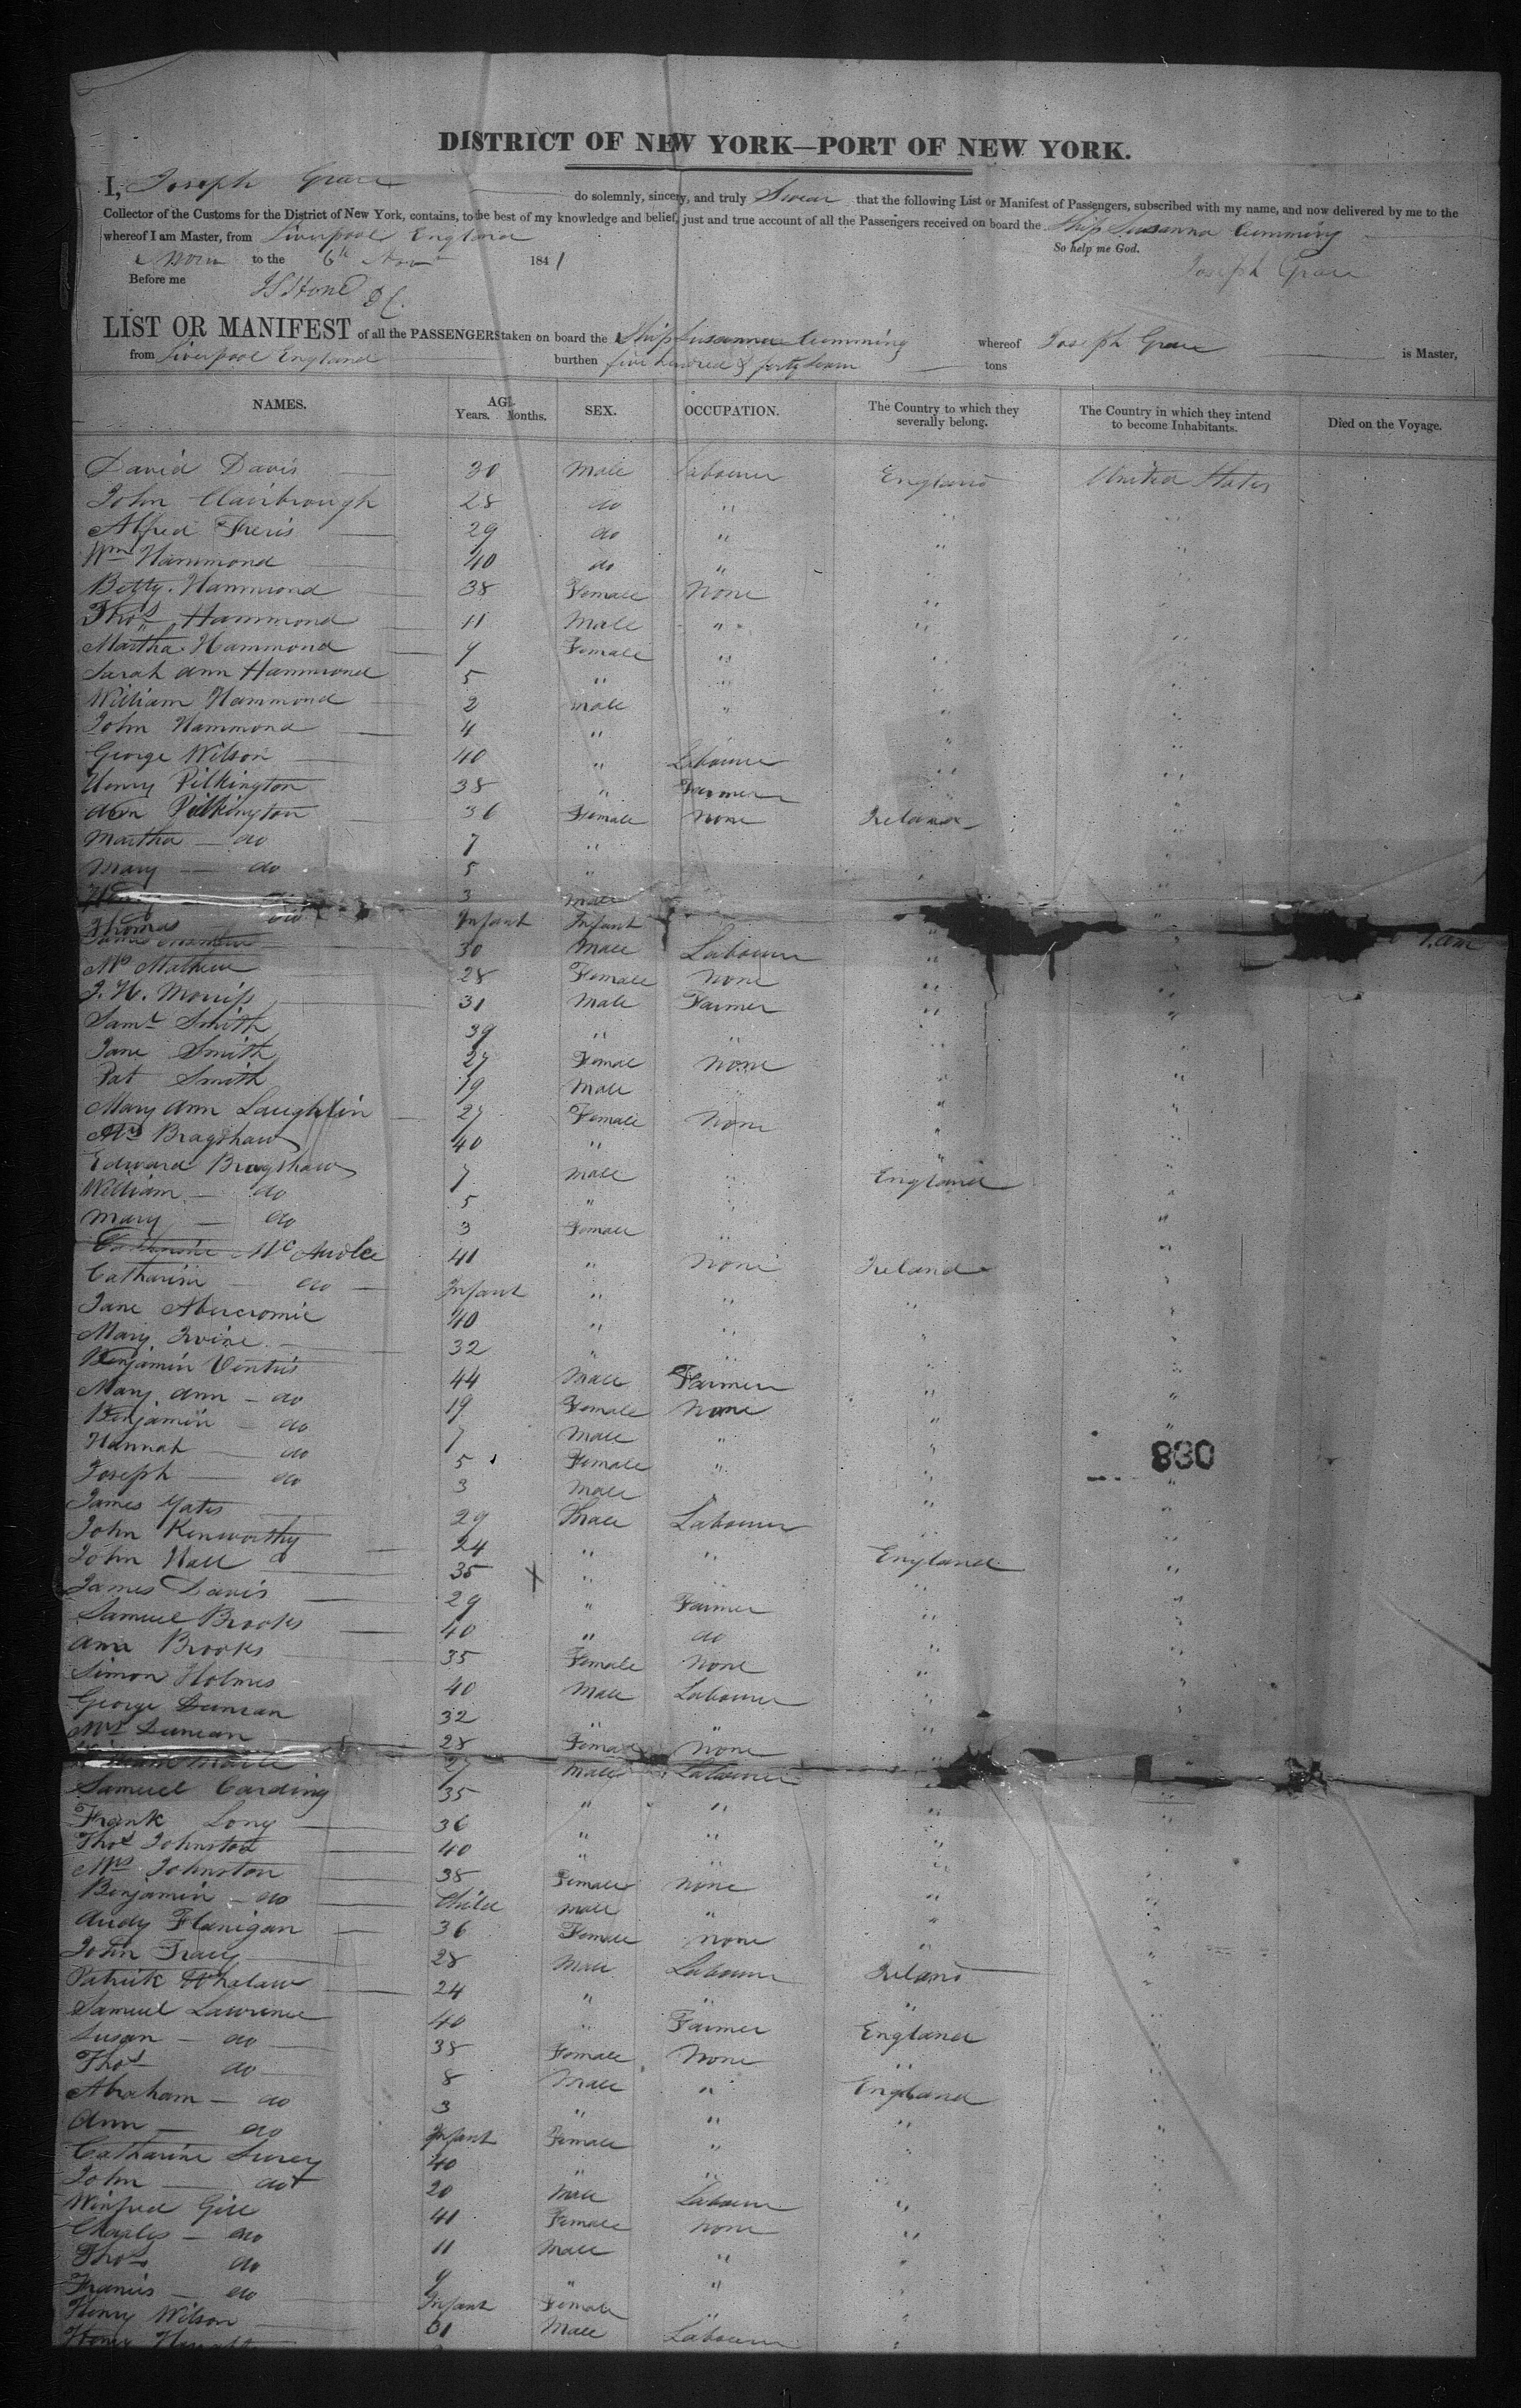 DISTRICT OF NEW YORK—PORT OF NEW YORK.
I, Joseph Grace do solemnly, sincerely, and truly Swear that the following List or Manifest of Passengers, subscribed with my name, and now delivered by me to the
Collector of the Customs for the District of New York, contains, to the best of my knowledge and belief, just and true account of all the Passengers received on board the Ship Susanna Cumming
whereof I am Master, from Liverpool England
Sworn to the 6th Nov 1841 So help me God.
Before me Joseph Grace
LIST OR MANIFEST of all the PASSENGERS taken on board the Ship Susanna Cumming whereof Joseph Grace is Master,
from Liverpool England burthen five hundred & forty seven tons
NAMES. AGE. Years. Months. SEX. OCCUPATION. The Country to which they severally belong. The Country in which they intend to become Inhabitants. Died on the Voyage.
David Davis 30 Male Labourer England United States
John Clairbrough 28 do "
Alfred Freris 29 do " " "
Wm Hammond 40 do " " "
Betty Hammond 38 Female None " "
Thos Hammond 11 Male " " "
Martha Hammond 9 Female " " "
Sarah Ann Hammond 5 " " " "
William Hammond 2 Male " " "
John Hammond 4 " " "
George Wilson 40 " Labourer " "
Henry Pilkington 38 " Farmer " "
Ann Pilkington 36 Female None Ireland "
Martha do 7 " "
Mary do 5 " "
do 3 Male
Thomas do Infant Infant " "
James Mathew 30 Male Labourer " "
Mrs Mathew 28 Female None " "
J. H. Morriss 31 Male Farmer " "
Saml Smith 39 " " "
Jane Smith 27 Female None "
Pat Smith 19 Male " "
Mary Ann Laughlin 27 Female None " "
Mrs Bragshaw 40 " "
Edward Bragshaw 7 Male " England "
William do 5 " " "
Mary do 3 Female " "
McArdle 41 " None Ireland "
Catharine do Infant " " " "
Jane Abercromie 40 " " "
Mary Irvine 32 " " "
Benjamin Ventris 44 Male Farmer " "
Mary Ann do 19 Female None " "
Benjamin do 7 Male " "
Hannah do 5 Female " "
830
Joseph do 3 Male "
James Yates 29 Male Labourer "
John Kenworthy 24 " " England "
John Hall 35 X " "
James Davis 29 " Farmer " "
Samuel Brooks 40 " do " "
Ann Brooks 35 Female None " "
Simon Holmes 40 Male Labourer " "
George Duncan 32 " " "
Mrs Duncan 28 Female None "
27 Male Labourer
Samuel Carding 35 " " " "
Frank Long 36 " " " "
Thos Johnston 40 " " "
Mrs Johnston 38 Female None " "
Benjamin do Child Male " "
Andy Flanigan 36 Female None " "
John Tracy 28 Male Labourer Ireland "
Patrick Whalaw 24 " " " "
Samuel Lawrence 40 " Farmer England "
Susan do 38 Female None " "
Thos do 8 Male " England "
Abraham do 3 " " " "
Ann do Infant Female " " "
Catharine Surey 40 " " "
John do 20 Male Labourer " "
Winfred Gill 41 Female None " "
Charles do 11 Male " " "
Thos do 9 " " "
Francis do Infant Female " "
Henry Wilson 61 Male Labourer " "